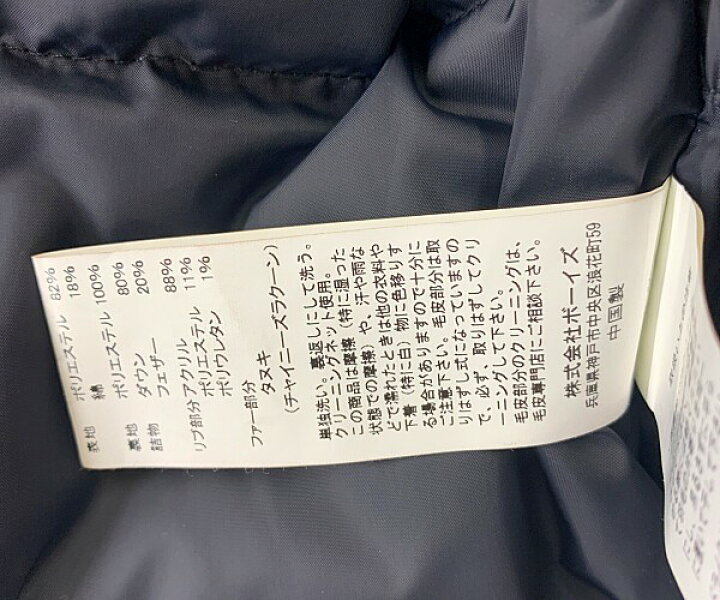 表地 ポリエステル 82%
綿 18%
裏地 ポリエステル 100%
詰物 ダウン 80%
フェザー 20%
リブ部分 アクリル 88%
ポリエステル 11%
ポリウレタン 1%
ファー部分
タヌキ
(チャイニーズラクーン)
単独洗い。裏返しにして洗う。
クリーニングネット使用。
この商品は摩擦(特に湿った
状態での摩擦)や、汗や雨な
どで濡れたときは他の衣料や
下着(特に白)物に色移りす
る場合がありますので十分に
ご注意下さい。毛皮部分は取
りはずし式になっていますの
で、必ず、取りはずしてクリ
ーニングして下さい。
毛皮部分のクリーニングは、
毛皮専門店にご相談下さい。
株式会社ボーイズ
兵庫県神戸市中央区浪花町59
中国製